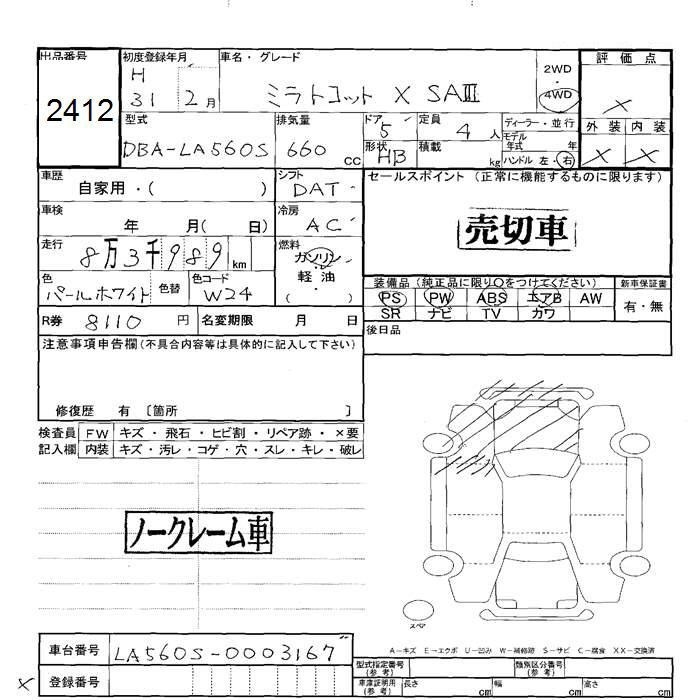 出品番号 初度登録年月 車名・グレード 評価点
2412 H 31 2月 ミラトコット X SAⅢ 2WD 4WD X
型式 排気量 ドア 5 定員 4人 ディーラー・並行 外装 内装
DBA-LA560S 660cc 形状 HB 積載 kg モデル年式 年 ハンドル 左・右 X X
車歴 自家用・( ) シフト DAT セールスポイント (正常に機能するものに限ります)
車検 年 月( 日) 冷房 AC 売切車
走行 8万3千989km 燃料 ガソリン・軽油 ( )
色 パールホワイト 色替 色コード W24 装備品 (純正品に限り○をつけてください) 新車保証書
PS PW ABS エアB AW 有・無
R券 8110 円 名変期限 月 日 SR ナビ TV カワ
注意事項申告欄(不具合内容等は具体的に記入して下さい) 後日品
修復歴 有 〔箇所 〕
検査員 FW キズ・飛石・ヒビ割・リペア跡・×要
記入欄 内装 キズ・汚レ・コゲ・穴・スレ・キレ・破レ
ノークレーム車
スペア
A-キズ E-エクボ U-凹み W-補修跡 S-サビ C-腐食 XX-交換済
車台番号 LA560S-0003167 型式指定番号(参考) 類別区分番号(参考)
X 登録番号 車庫証明用(参考) 長さ cm 幅 cm 高さ cm